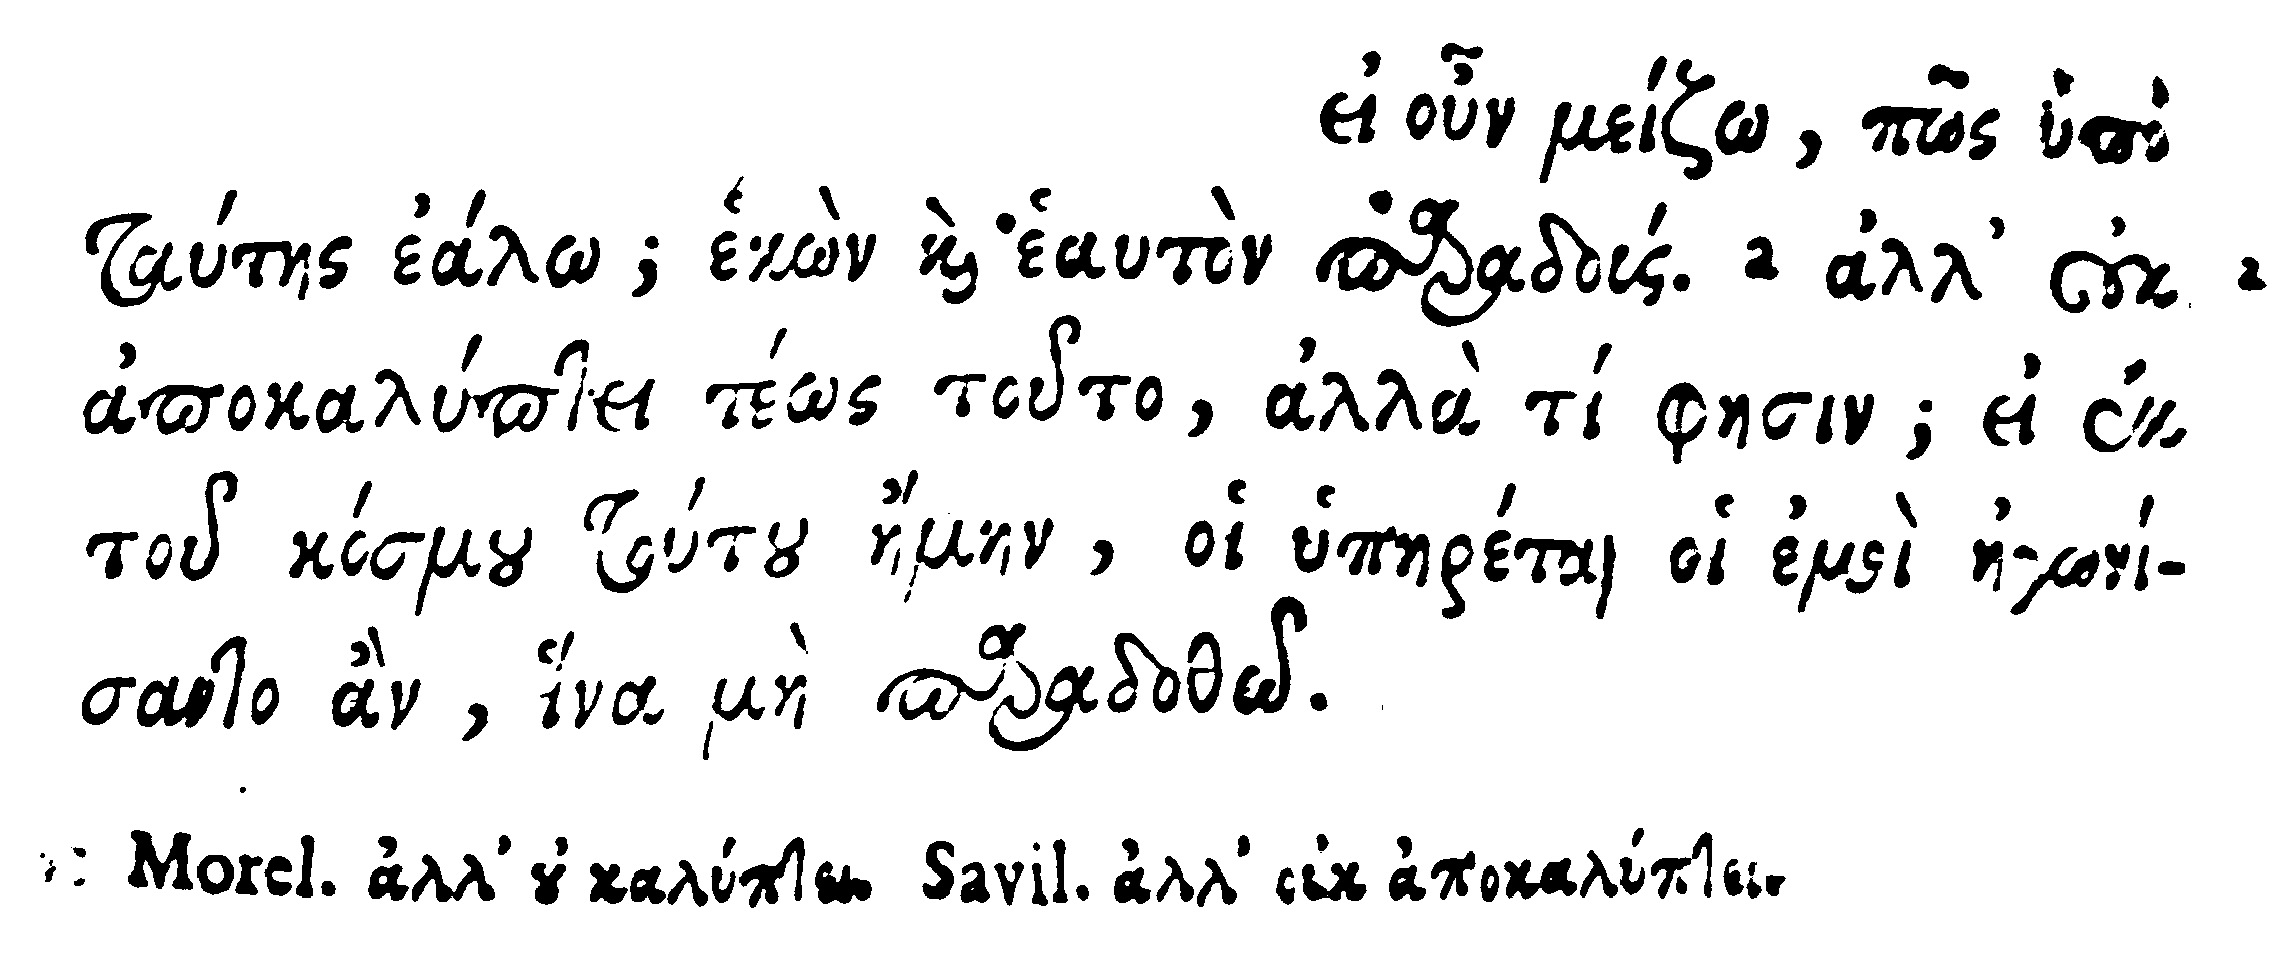 εἰ οὖν μείζω, πῶς ὑπὸ
ταύτης ἑάλω; ἑκὼν καὶ ἑαυτὸν παραδούς. 2 ἀλλ' οὐκ 2
ἀποκαλύπτει τέως τοῦτο, ἀλλὰ τί φησιν; εἰ ἐκ
τοῦ κόσμου τούτου ἤμην, οἱ ὑπηρέται οἱ ἐμοὶ ἠγωνί-
σαντο ἂν, ἵνα μὴ παραδοθῶ.
Morel. ἀλλ' οὐ καλύπτει. Savil. ἀλλ' οὐκ ἀποκαλύπτει.